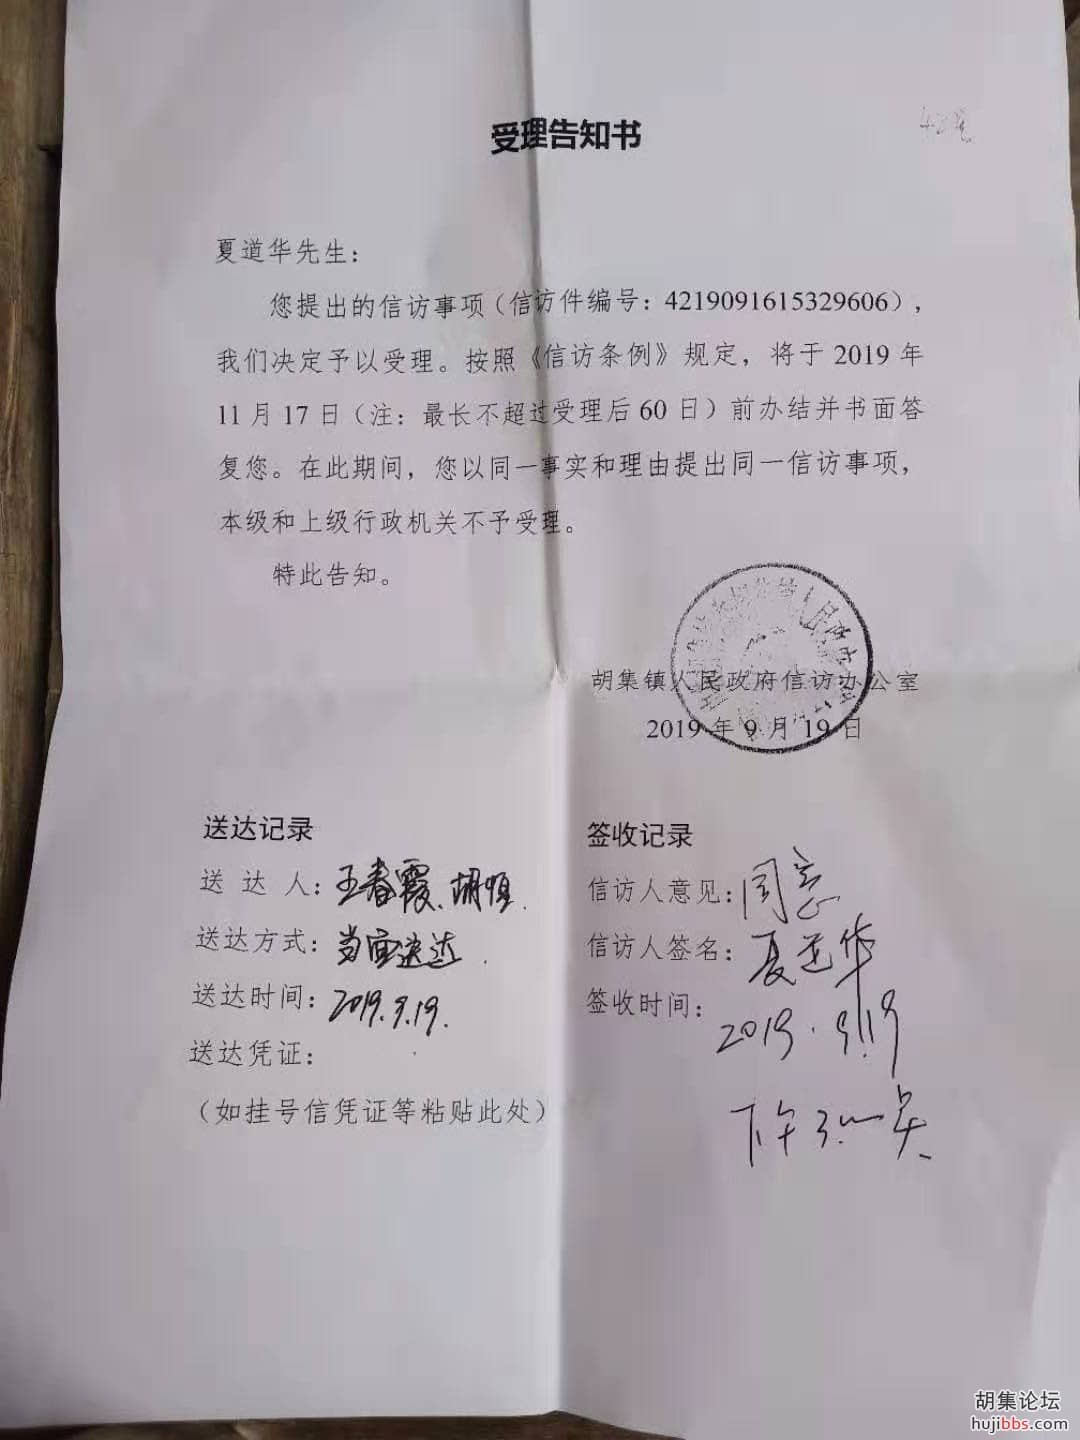 受理告知书
夏道华先生：
您提出的信访事项（信访件编号：4219091615329606），
我们决定予以受理。按照《信访条例》规定，将于 2019 年
11 月 17 日（注：最长不超过受理后 60 日）前办结并书面答
复您。在此期间，您以同一事实和理由提出同一信访事项，
本级和上级行政机关不予受理。
特此告知。
胡集镇人民政府信访办公室
2019 年 9 月 19 日
送达记录
送 达 人：王春霞、胡恒.
送达方式：当面送达.
送达时间：2019.9.19.
送达凭证：
（如挂号信凭证等粘贴此处）
签收记录
信访人意见：同意
信访人签名：夏道华
签收时间：
2019.9.19
下午
胡集论坛
hujibbs.com